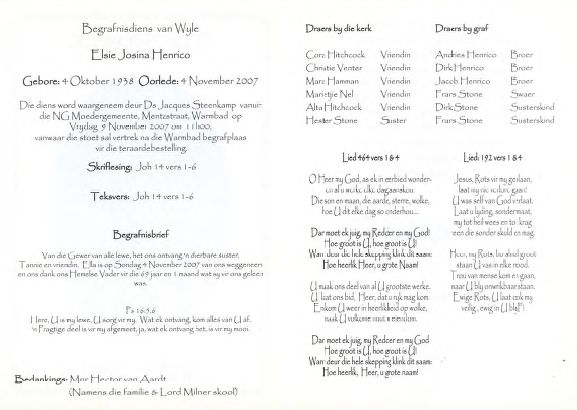 Begrafnisdiens van Wyle
Elsie Josina Henrico
Gebore: 4 Oktober 1938 Oorlede: 4 November 2007
Die diens word waargeneem deur Ds Jacques Steenkamp vanuit
die NG Moedergemeente, Mentzstraat, Warmbad op
Vrydag 9 November 2007 om 11h00,
vanwaar die stoet sal vertrek na die Warmbad begrafplaas
vir die teraardebestelling.
Skriflesing: Joh 14 vers 1-6
Teksvers: Joh 14 vers 1-6
Begrafnisbrief
Van die Gewer van alle lewe, het ons ontvang 'n dierbare suster,
Tannie en vriendin. Ella is op Sondag 4 November 2007 van ons weggeneem
en ons dank ons Hemelse Vader vir die 69 jaar en 1 maand wat sy vir ons geleen
was.
Ps 16:5,6
Here, U is my lewe, U sorg vir my. Wat ek ontvang, kom alles van U af.
'n Pragtige deel is vir my afgemeet, ja, wat ek ontvang het, is vir my mooi.
Bedankings: Mnr Hector van Aardt
(Namens die familie & Lord Milner skool)
Draers by die kerk
Cora Hitchcock Vriendin
Christie Venter Vriendin
Mara Hamman Vriendin
Maristjie Nel Vriendin
Alta Hitchcock Vriendin
Hester Stone Suster
Draers by graf
Andries Henrico Broer
Dirk Henrico Broer
Jacob Henrico Broer
Frans Stone Swaer
Dirk Stone Susterskind
Frans Stone Susterskind
Lied 464 vers 1 & 4
O Heer my God, as ek in eerbied wonder
en al u werke elke dag aanskou.
Die son en maan, die aarde, sterre, wolke,
hoe U dit elke dag so onderhou...
Dan moet ek juig, my Redder en my God!
Hoe groot is U, hoe groot is U!
Want deur die hele skepping klink dit saam:
Hoe heerlik Heer, u grote Naam!
U maak ons deel van al U grootste werke.
U laat ons bid, Heer, dat u ryk mag kom.
En kom U weer in heerlikheid op wolke,
maak U volkome nuut u eiendom.
Dan moet ek juig, my Redder en my God
Hoe groot is U, hoe groot is U!
Want deur die hele skepping klink dit saam:
Hoe heerlik, Heer, u grote naam!
Lied: 192 vers 1 & 4
Jesus, Rots vir my geslaan,
laat my nie verlore gaan!
U was self van God verlaat.
Laat u lyding, sondermaat,
my tot heil wees en to krag
teen die sonder skuld en mag.
Heer, my Rots, bo almal groot
staan U vas in elke nood.
Trou van mense kom en gaan,
maar U bly onwrikbaar staan.
Ewige Rots, U laat ook my
veilig, ewig in U bly!